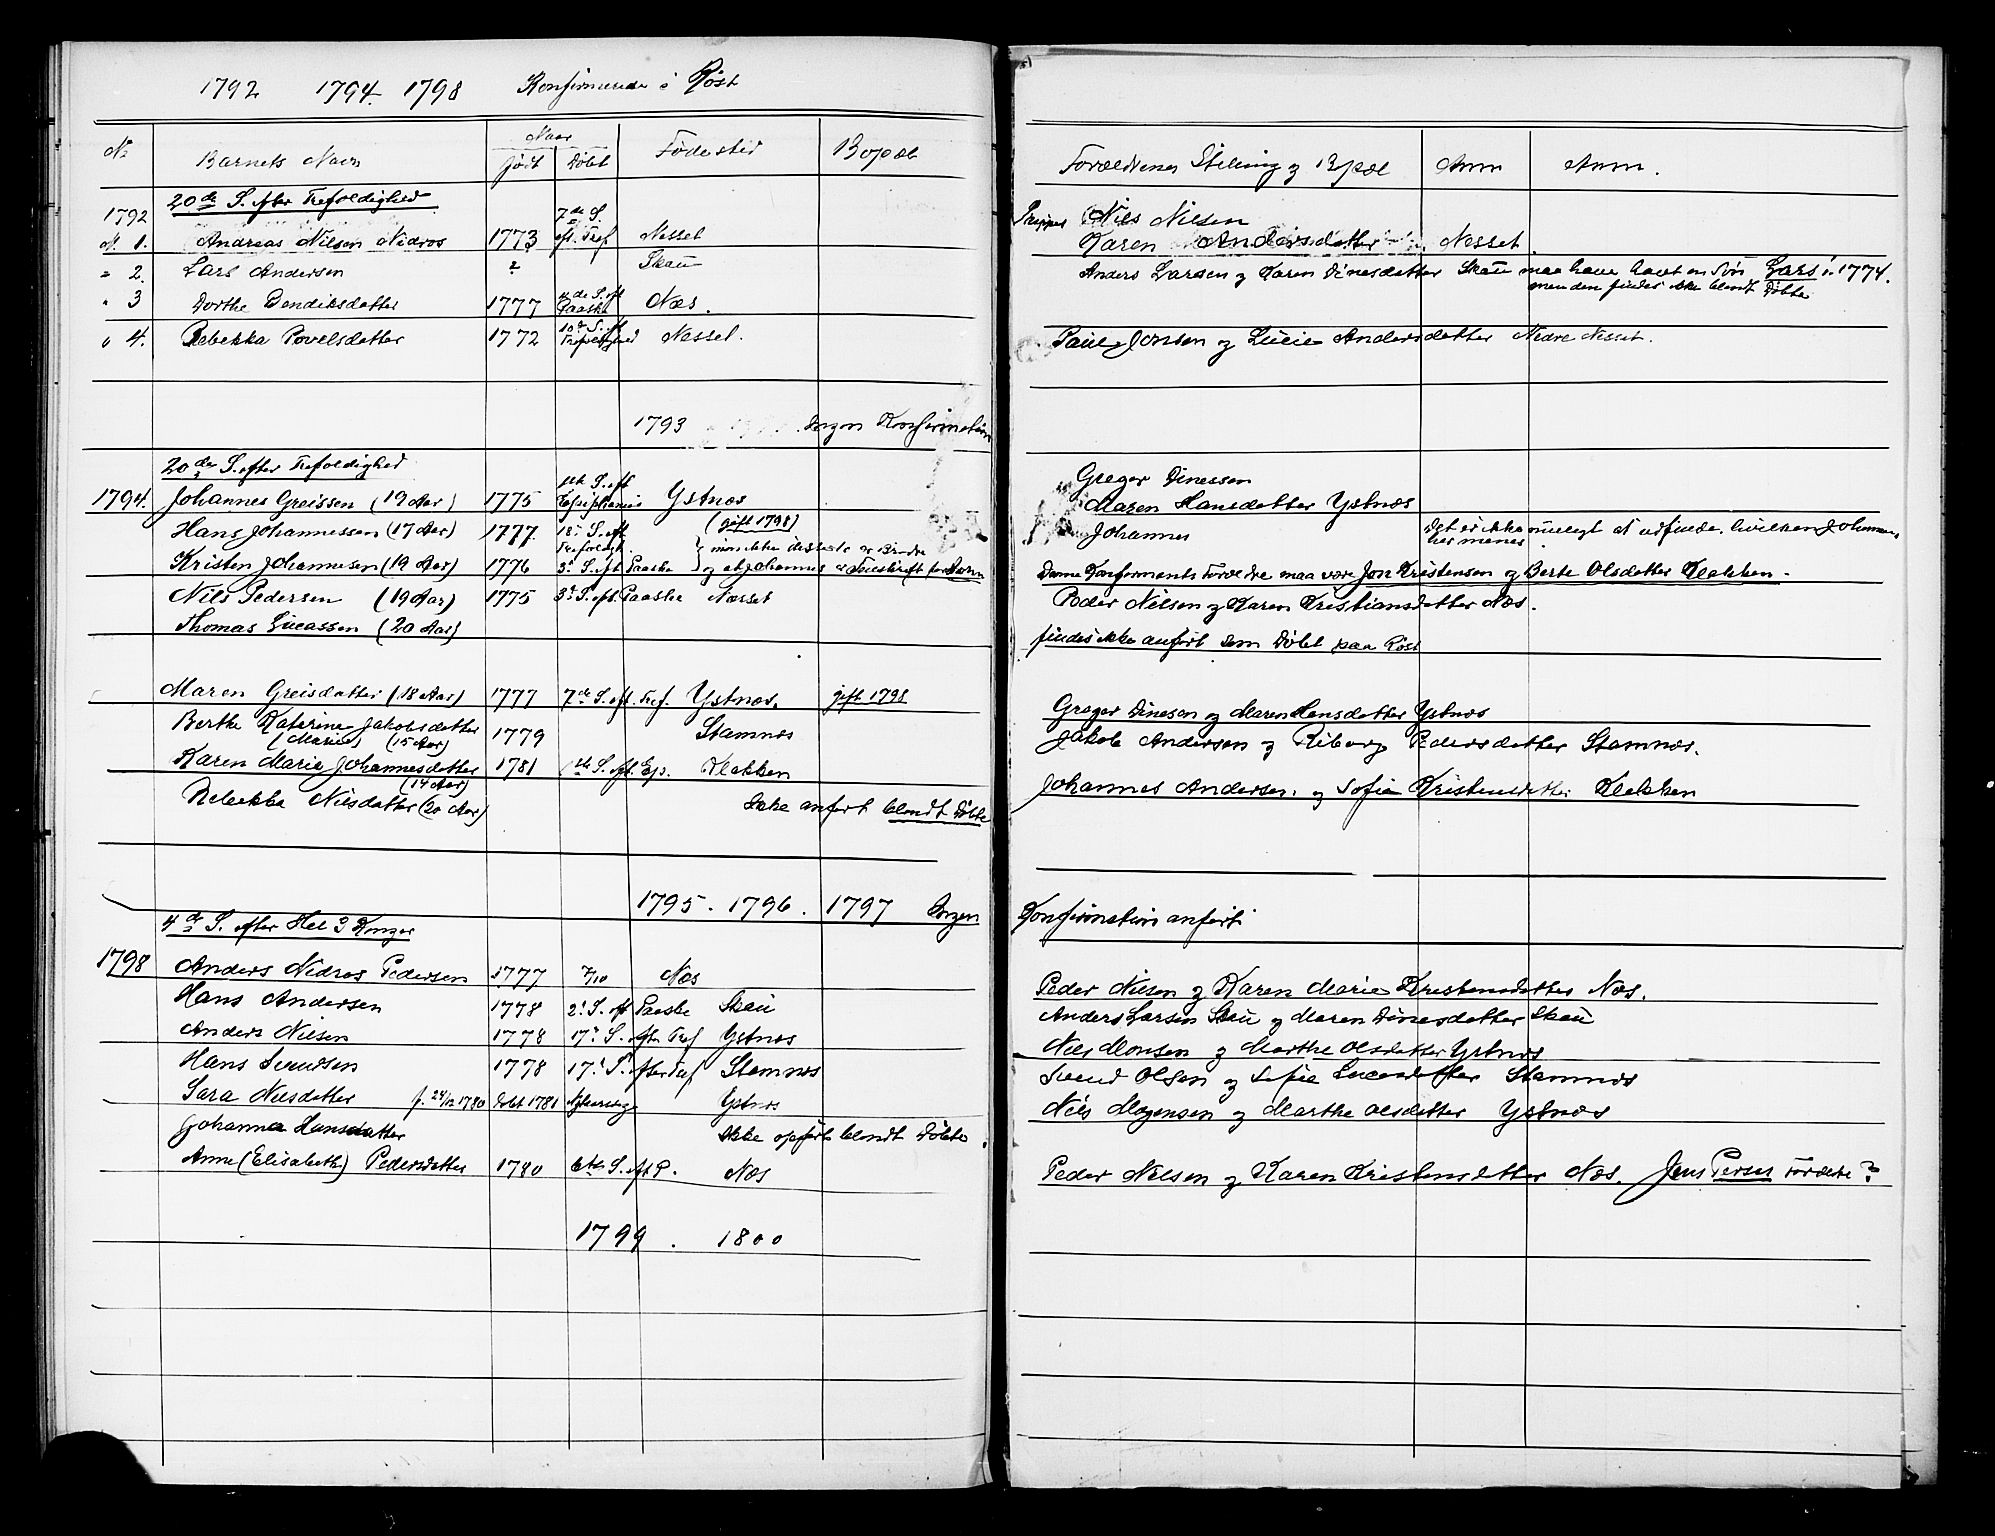 1792 1794. 1798 Konfirmerede i Røst
No Barnets Navn Naar Født Døbt Fødested Bopæl
20de S. efter Trefoldighed
1792 7de S.
N. 1. Andreas Nilsen Nidros 1773 eft. Tref Nesset
" 2. Lars Andersen ? Skau
" 3 Dorthe Bendiksdatter 1777 4de S. eft Paaske Næs.
" 4. Rebekka Povelsdatter 1772 10de S. eft Trefoldighed Nesset.
1793 Ingen Konfirmation
20de S. efter Trefoldighed
1794. Johannes Greissen (19 Aar) 1775 1ste S. eft Epiphanis Ystnæs
Hans Johannessen (17 Aar) 1777. 18. S. eft Trefoldigh. (gift 1798)
Kristen Johannesen (19 Aar) 1776 3. S. eft Paaske } mon ikke disse to er Brødre
og at Johannes er Feilskrift for Hans
Nils Pedersen (19 Aar) 1775 3. S. eft. Paaske Næsset
Thomas Lucassen (20 Aar)
Maren Greisdatter (18 Aar) 1777 7de S. eft. Tref. Ystnæs. gift 1798
Berthe Katerine Jakobsdatter 1779 Stamnæs
(Marie) (15 Aar)
Karen Maria Johannesdatter 1781 1ste S. eft. Ep. Klakken
(14 Aar)
Rebekka Nilsdatter (20 Aar) Ikke anført blandt Døbte
1795. 1796. 1797 Ingen
4de S. efter Hel 3 Konger
1798 Anders Nidros Pedersen 1777 7/10 Næs
Hans Andersen 1778 2. S. eft Paaske Skau
Anders Nilsen 1778 17. S. efter Tref Ystnæs
Hans Svendsen 1778 17. S. efter Tref Stamnæs
Sara Nilsdatter f. 24/12 1780 Døbt 1781 Nytaarsdag Ystnæs
Johanna Hansdatter Ikke opført blandt Døbte.
Anne (Elisabeth) Pedersdatter 1780 6te S. eft P. Næs
1799. 1800
Forældrenes Stilling og Bopæl Anm Anm.
Nils Nilsen
Karen Andersdatter Nesset
Anders Larsen og Karen Dinesdatter Skau maa have havt en Søn Lars i 1774.
men den findes ikke blandt Døbte
Paul Jonsen og Lucie Andersdatter Nedre Nesset.
Greger Dinessen
Maren Hansdatter Ystnæs
Johannes Det er ikke muligt at udfinde hvilken Johannes
her menes
Denne Konfirmants Forældre maa være Jon Kristensen og Berte Olsdatter Klakken.
Peder Nilsen og Karen Kristiansdatter Næs.
findes ikke anført som Døbt paa Røst
Greger Dinesen og Maren Hansdatter Ystnæs
Jakob Andersen og Riborg Pedersdatter Stamnæs.
Johannes Andersen. og Sofie Kristensdatter Klakken
Konfirmation anført
Peder Nilsen og Karen Marie Kristensdatter Næs.
Anders Larsen Skau og Maren Dinesdatter Skau
Nils Monsen og Marthe Olsdatter Ystnæs
Svend Olsen og Sofie Lucasdatter Stamnæs
Nils Mogensen og Marthe Olsdatter Ystnæs
Peder Nilsen og Karen Kristensdatter Næs. Jens Persas Forældre?